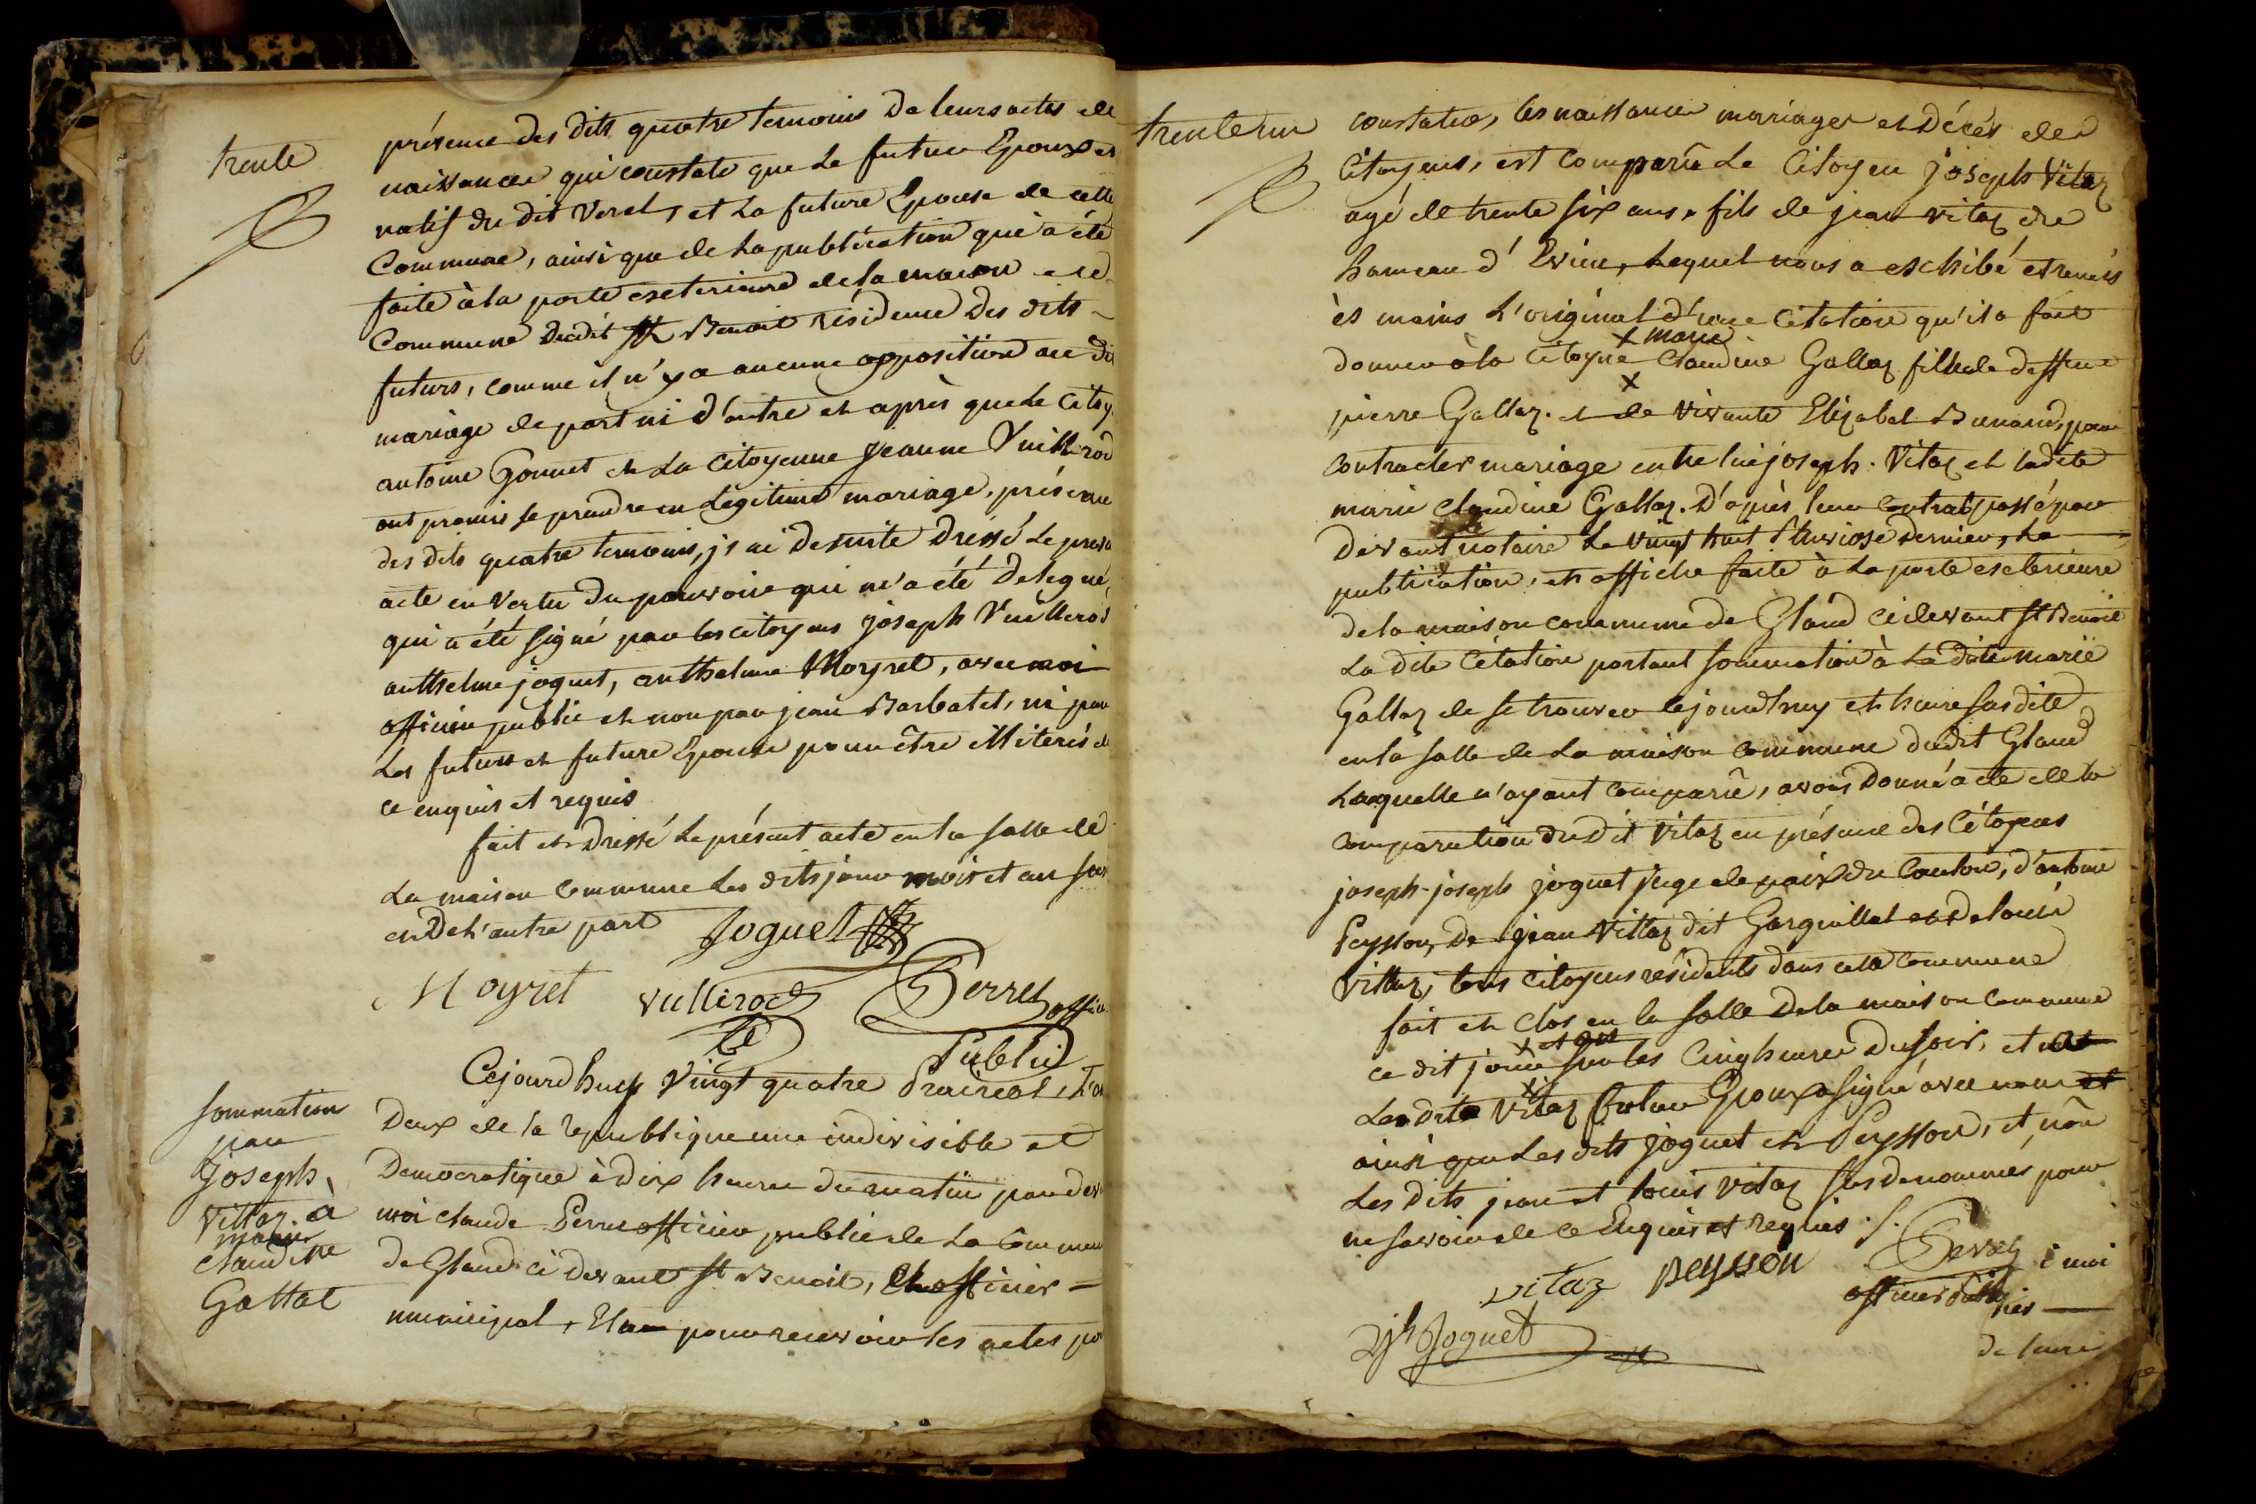 trente
présence des dits quatre temoins de leurs actes de
naissances qui constate que le futur Epoux est
natif du dit Verel, et la future Epouse de cette
Commune, ainsi que de la publication qui a été
faite à la porte exterieure de la maison de
Commune dudit St Benoit résidence des dits
futurs, comme il n'y a aucune opposition au dit
mariage de part ni d'autre et après que le Citoy.
antoine Gonnet et la Citoyenne Jeanne Vuillerod
ont promis se prendre en Légitime mariage, présence
des dits quatre temoins, j'ai de suite dréssé le present
acte en Vertu du pouvoir qui m'a été délegué,
qui a été signé par les citoyens joseph Vuillerod
anthelme joguet, anthelme Moyret, avec moi
officier public et non par jean Barbatet, ni par
Les futurs et future Epouse pour être illiterés de
ce enquis et requis
fait et Dréssé le présent acte en la salle de
La maison Commune Les dits jour mois et an sus
et De l'autre part Joguet
Moyret Vullerod Perret officier
Public
sommation
par
Joseph
Vittaz à
marie
claudine
Gallat
Cejourdhuy Vingt quatre Prairial, L'an
Deux de la republique une indivisible et
Democratique à dix heures du matin par dev.
moi claude Perret officier public de La Commune
de Gland ci devant St Benoit, Elu officier =
municipal, Elu pour recevoir les actes pour
trente un
constater, les naissances mariages et Décés des
Citoyens, est comparû Le Citoyen joseph Vitaz
agé de trente six ans, fils de jean vitaz du
hameau d'Evieu, Lequel nous a exhibé et remis
ès mains L'original d'une Citation qu'il a fait
donner à la Citoyne x marie Claudine Gallaz fille de deffunt
pierre Gallaz. et de vivante Elizabet Bunand, pour
contracter mariage entre lui joseph. Vitaz et ladite
marie Claudine Gallaz. D'après leur contrat passé par
devant notaire Le Vingt huit Pluviose dernier, La
publication, et affiche faite à la porte exterieure
de la maison commune de Gland ci devant St Benoit
La dite Citation portant sommation à La dite marie
Gallaz de se trouver cejourdhuy et heure susdite
en la salle de La maison commune dudit Gland
Laquelle n'ayant comparu, avons donné acte de la
comparution du dit vitaz en présence des Citoyens
joseph-joseph joguet juge de paix du Canton, d'antoine
Peysson, de jean Vittaz dit Garguillat et de louis
Vittaz, tous citoyens résidents dans cette Commune
fait et clos en la salle de la maison commune
ce dit jour sur les Cinq heures du soir, et
Le dit Vitaz futur Epoux a signé avec nous
ainsi que Les dits joguet et Peysson, et non
Les dits jean et louis vitaz sus denommés pour
ne savoir de ce Enquis et requis ./.
vitaz peysson Perret
officier Public
Jh Joguet